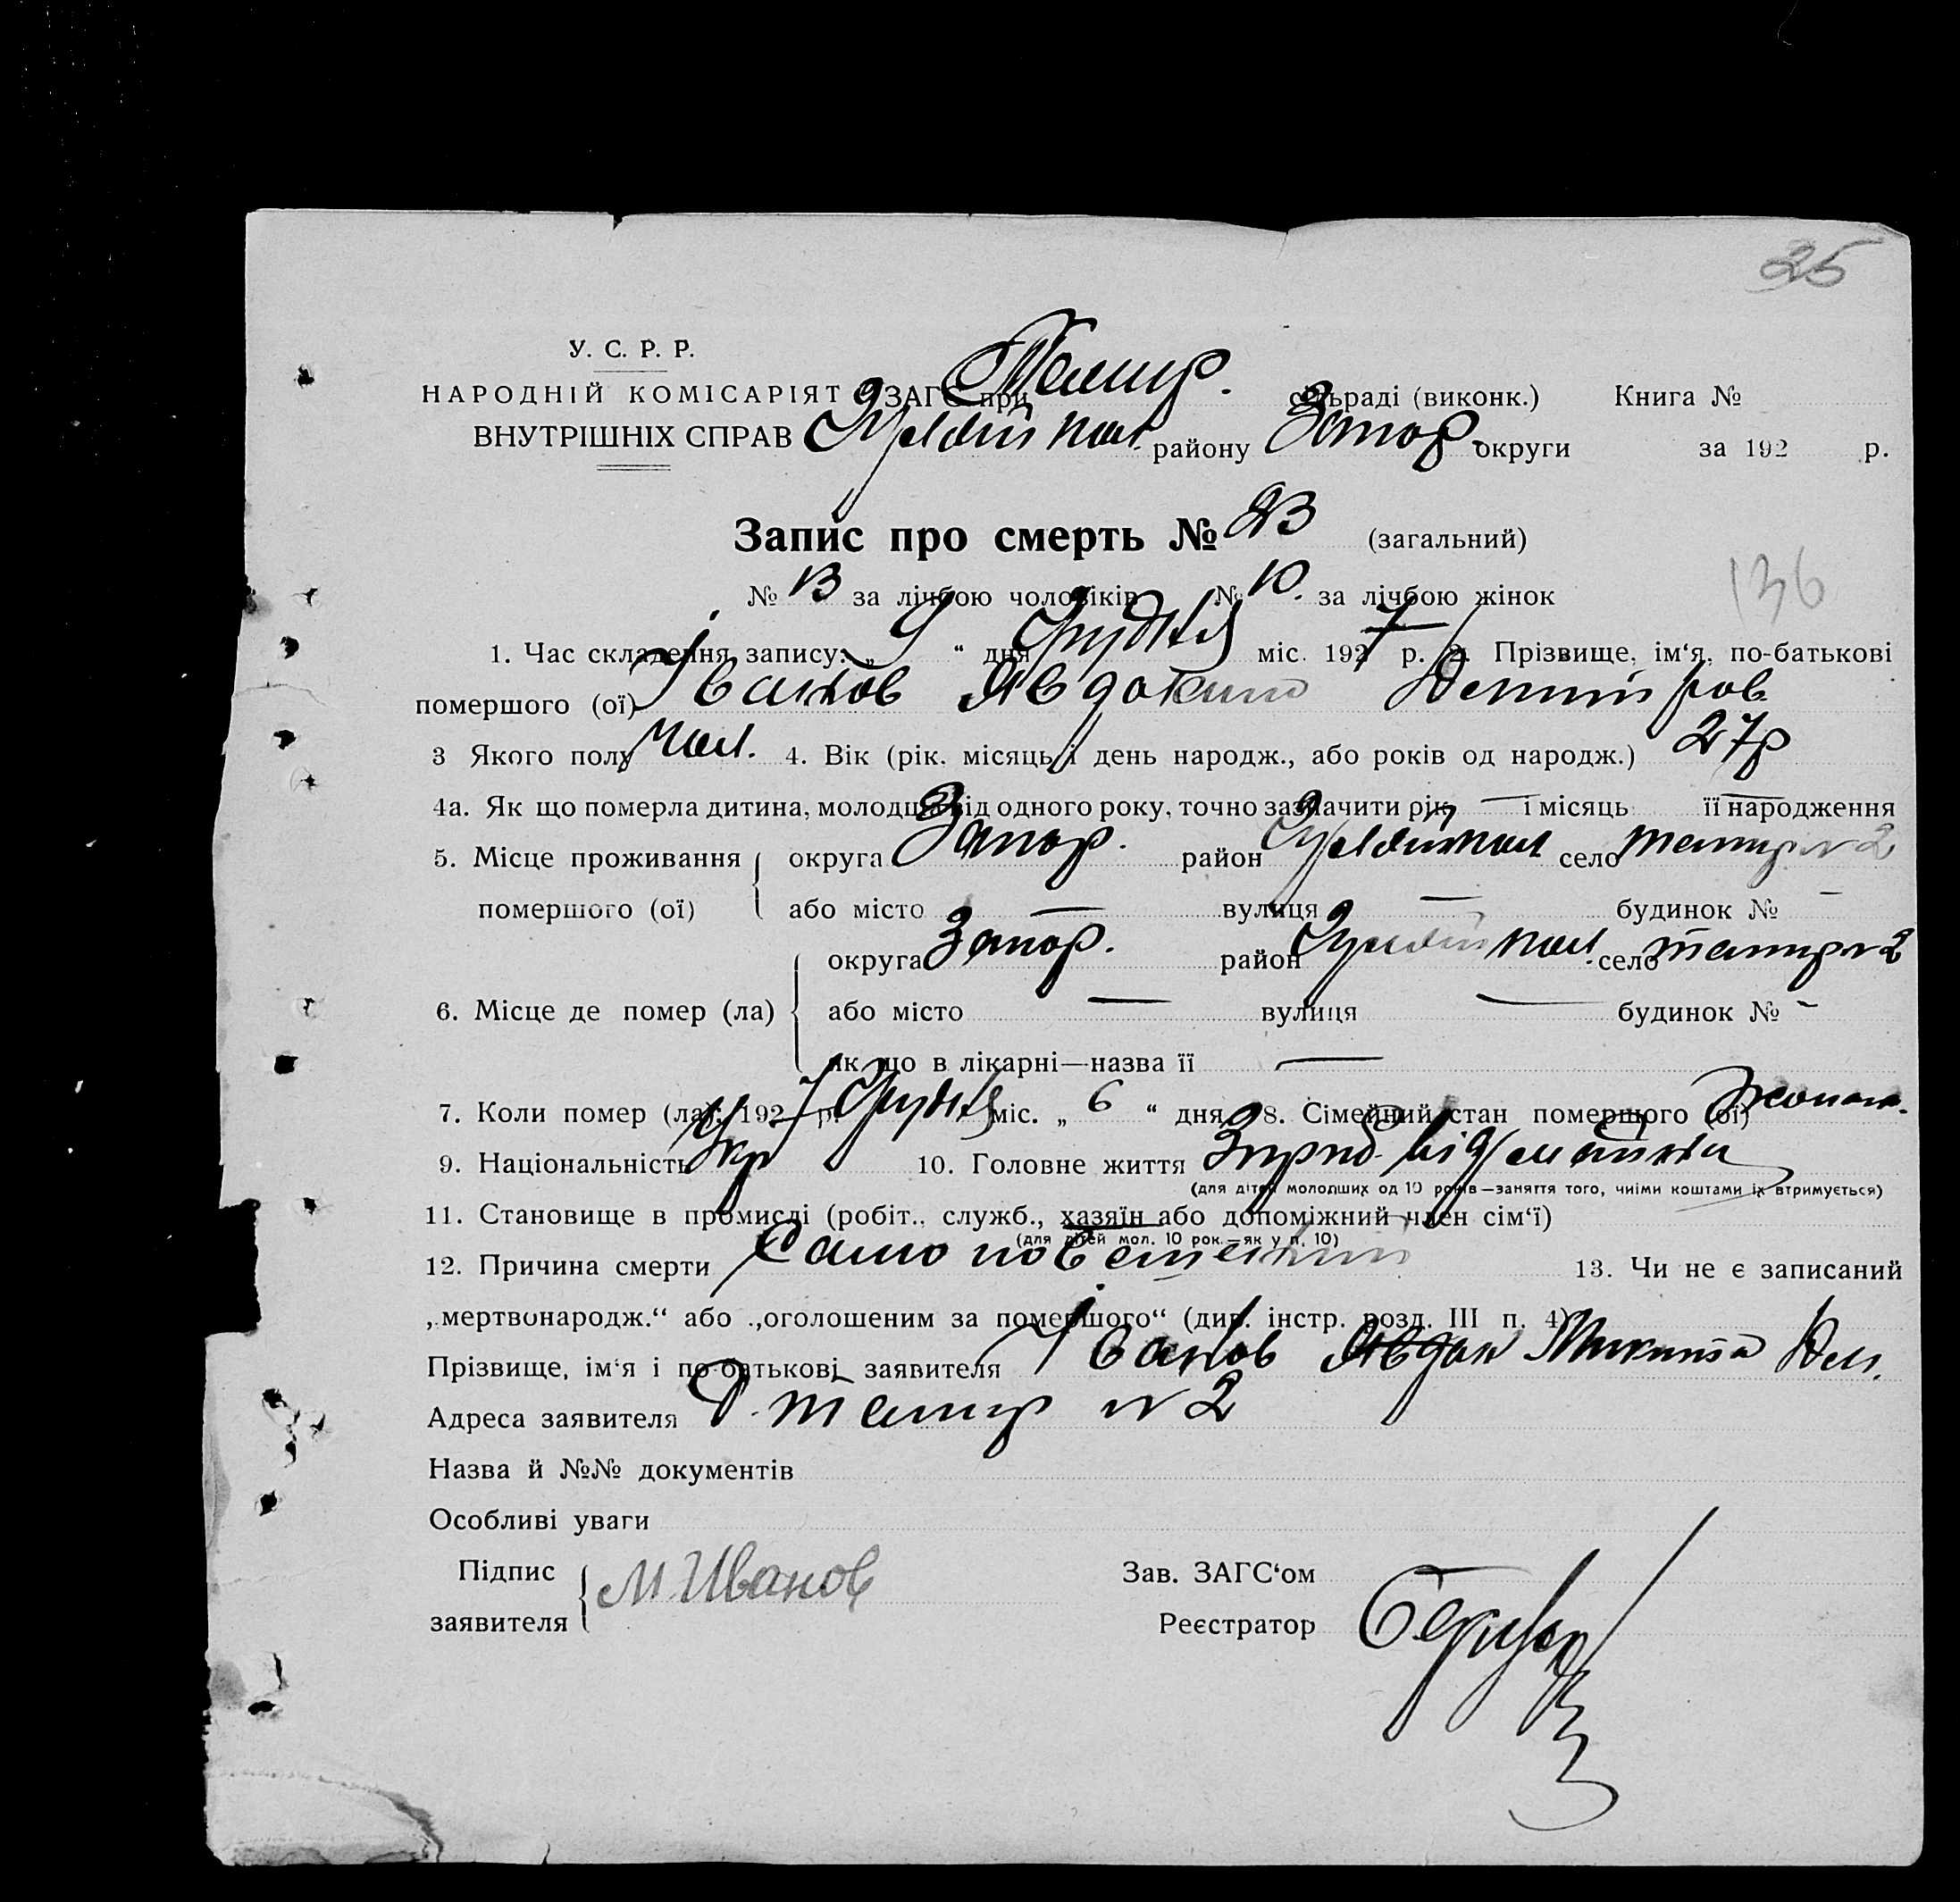 25
У. С. Р. Р.
НАРОДНІЙ КОМІСАРІЯТ ЗАГС при Темир. сільраді (виконк.) Книга №
ВНУТРІШНІХ СПРАВ Гуляйпол району Запор округи за 192 р.
Запис про смерть № 23 (загальний)
136
№ 13 за лічбою чоловіків № 10. за лічбою жінок
1. Час складення запису: „ 9 “ дня Грудня міс. 1927 р. 2. Прізвище, ім‘я, по-батькові
помершого (ої) Іванов Явдоким Дмитров
3 Якого полу Чол. 4. Вік (рік. місяць і день народж., або років од народж.) 27 р
4а. Як що померла дитина, молодша від одного року, точно зазначити рік — і місяць — її народження
5. Місце проживання округа Запор. район Гуляйпол село Темир № 2
помершого (ої) або місто — вулиця — будинок № —
округа Запор. район Гуляйпол. село Темир № 2
6. Місце де помер (ла) або місто — вулиця — будинок № —
як що в лікарні—назва її —
7. Коли помер (ла): 1927 р. Грудня міс. „ 6 “ дня 8. Сімейний стан помершого (ої) Жонат.
9. Національність Укр 10. Головне життя
(для дітей молодших од 10 років—заняття того, чиїми коштами їх втримується)
11. Становище в промислі (робіт., служб., хазяїн або допоміжний член сім‘ї)
(для дітей мол. 10 рок.—як у п. 10)
12. Причина смерти 13. Чи не є записаний
„мертвонародж.“ або „оголошеним за помершого“ (див. інстр. розд. III п. 4)
Прізвище, ім‘я і по-батькові заявителя Іванов Явдок Микита Дм.
Адреса заявителя с. Темир № 2
Назва й №№ документів
Особливі уваги
Підпис М Иванов Зав. ЗАГС‘ом
заявителя Реєстратор